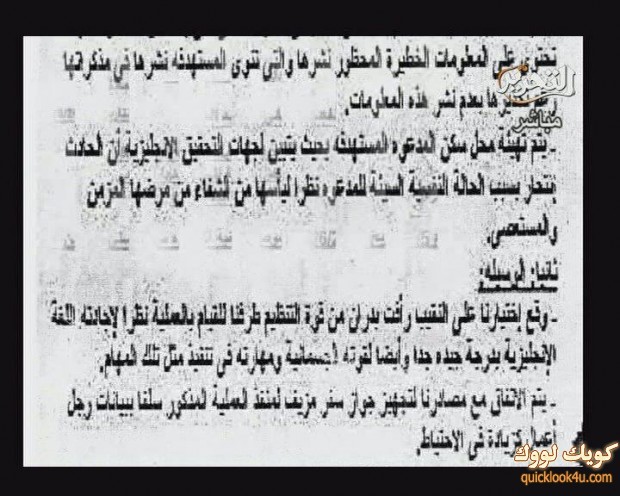 تحتوي على المعلومات الخطيرة المحظور نشرها والتي تنوى المستهدفه نشرها في مذكراتها
ها بعدم نشر هذه المعلومات.
التحرير
مباشر
_ يتم تهيئة محل سكن المدعوه المستهدفه بحيث يتبين لجهات التحقيق الإنجليزية أن الحادث
إنتحار بسبب الحالة النفسية السيئة للمدعوه نظرا ليأسها من الشفاء من مرضها المزمن
والمستعصى.
ثانيا: الوسيله:
_ وقع إختيارنا على النقيب رأفت بدران من قوة التنظيم طرفنا للقيام بالعملية نظرا لإجادته اللغة
الإنجليزية بدرجة جيده جدا وأيضا لقوته الجسمانية ومهارته في تنفيذ مثل تلك المهام.
_ يتم الإتفاق مع مصادرنا لتجهيز جواز سفر مزيف لمنفذ العملية المذكور سلفا ببيانات رجل
أعمال كزيادة في الاحتياط.
كويك لووك
quicklook4u.com